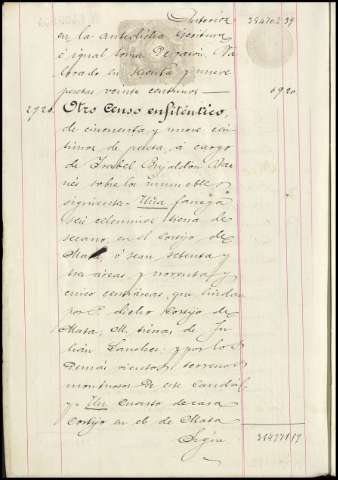 Anterior 354702 39
en la antedicha escritura
é igual toma de razón. Va-
lorado en sesenta y nueve
pesetas veinte centimos — 69 20
292 Otro censo enfitéutico,
de cincuenta y nueve cén-
timos de peseta, á cargo
de Isabel
nés sobre los inmuebles
siguientes. Una fanega
seis celemines tierra de
secano, en el Cortijo de
Mata, ó sean setenta y
tres áreas, y noventa y
cinco centiáreas, que lindan
por P. dicho Cortijo de
Mata, M. tierras de Ju-
lián Sanchez, y por los
demás vientos terrenos
montuosos de este caudal,
y Un cuarto de casa
Cortijo en el de Mata
Sigue